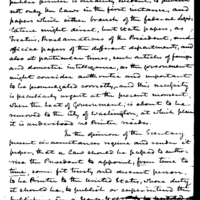 out only the Laws in the first instance, and
papers which either branch of the federal Legis-
lature might direct, but State papers, as,
Treaties, Proclamations of the President, and
official papers of the different departments, and
also at particular times, such articles of foreign
and domestic intelligence, as the government
might consider authentic and important
to be promulgated correctly, and this necessity
is peculiarly urgent at the present moment
when the Seat of Government, is about to be
removed to the City of Washington, at which place
it is understood no Printer resides.
In the opinion of the Secretary
present circumstances require and render it
proper, that a Law should be passed to autho-
rise the President to appoint, from time to
time, some suitable and discreet person,
to be Printer to the United States, whose duty
it should be, to publish or superintend the